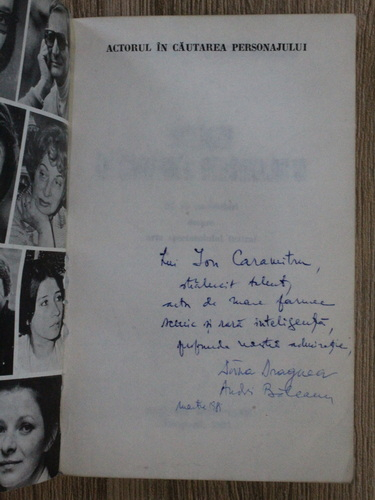 ACTORUL ÎN CĂUTAREA PERSONAJULUI
Lui Ion Caramitru,
strălucit talent,
actor de mare farmec
scenic și rară inteligență,
profunda noastră admirație,
Dragnea
Andrei Băleanu
martie